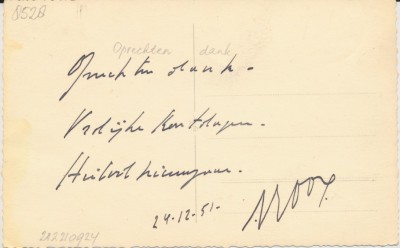 852B
Oprechten dank
Oprechten dank -
Vrolijke Kerstdagen -
Nieuwjaar -
24-12-51-
212210924